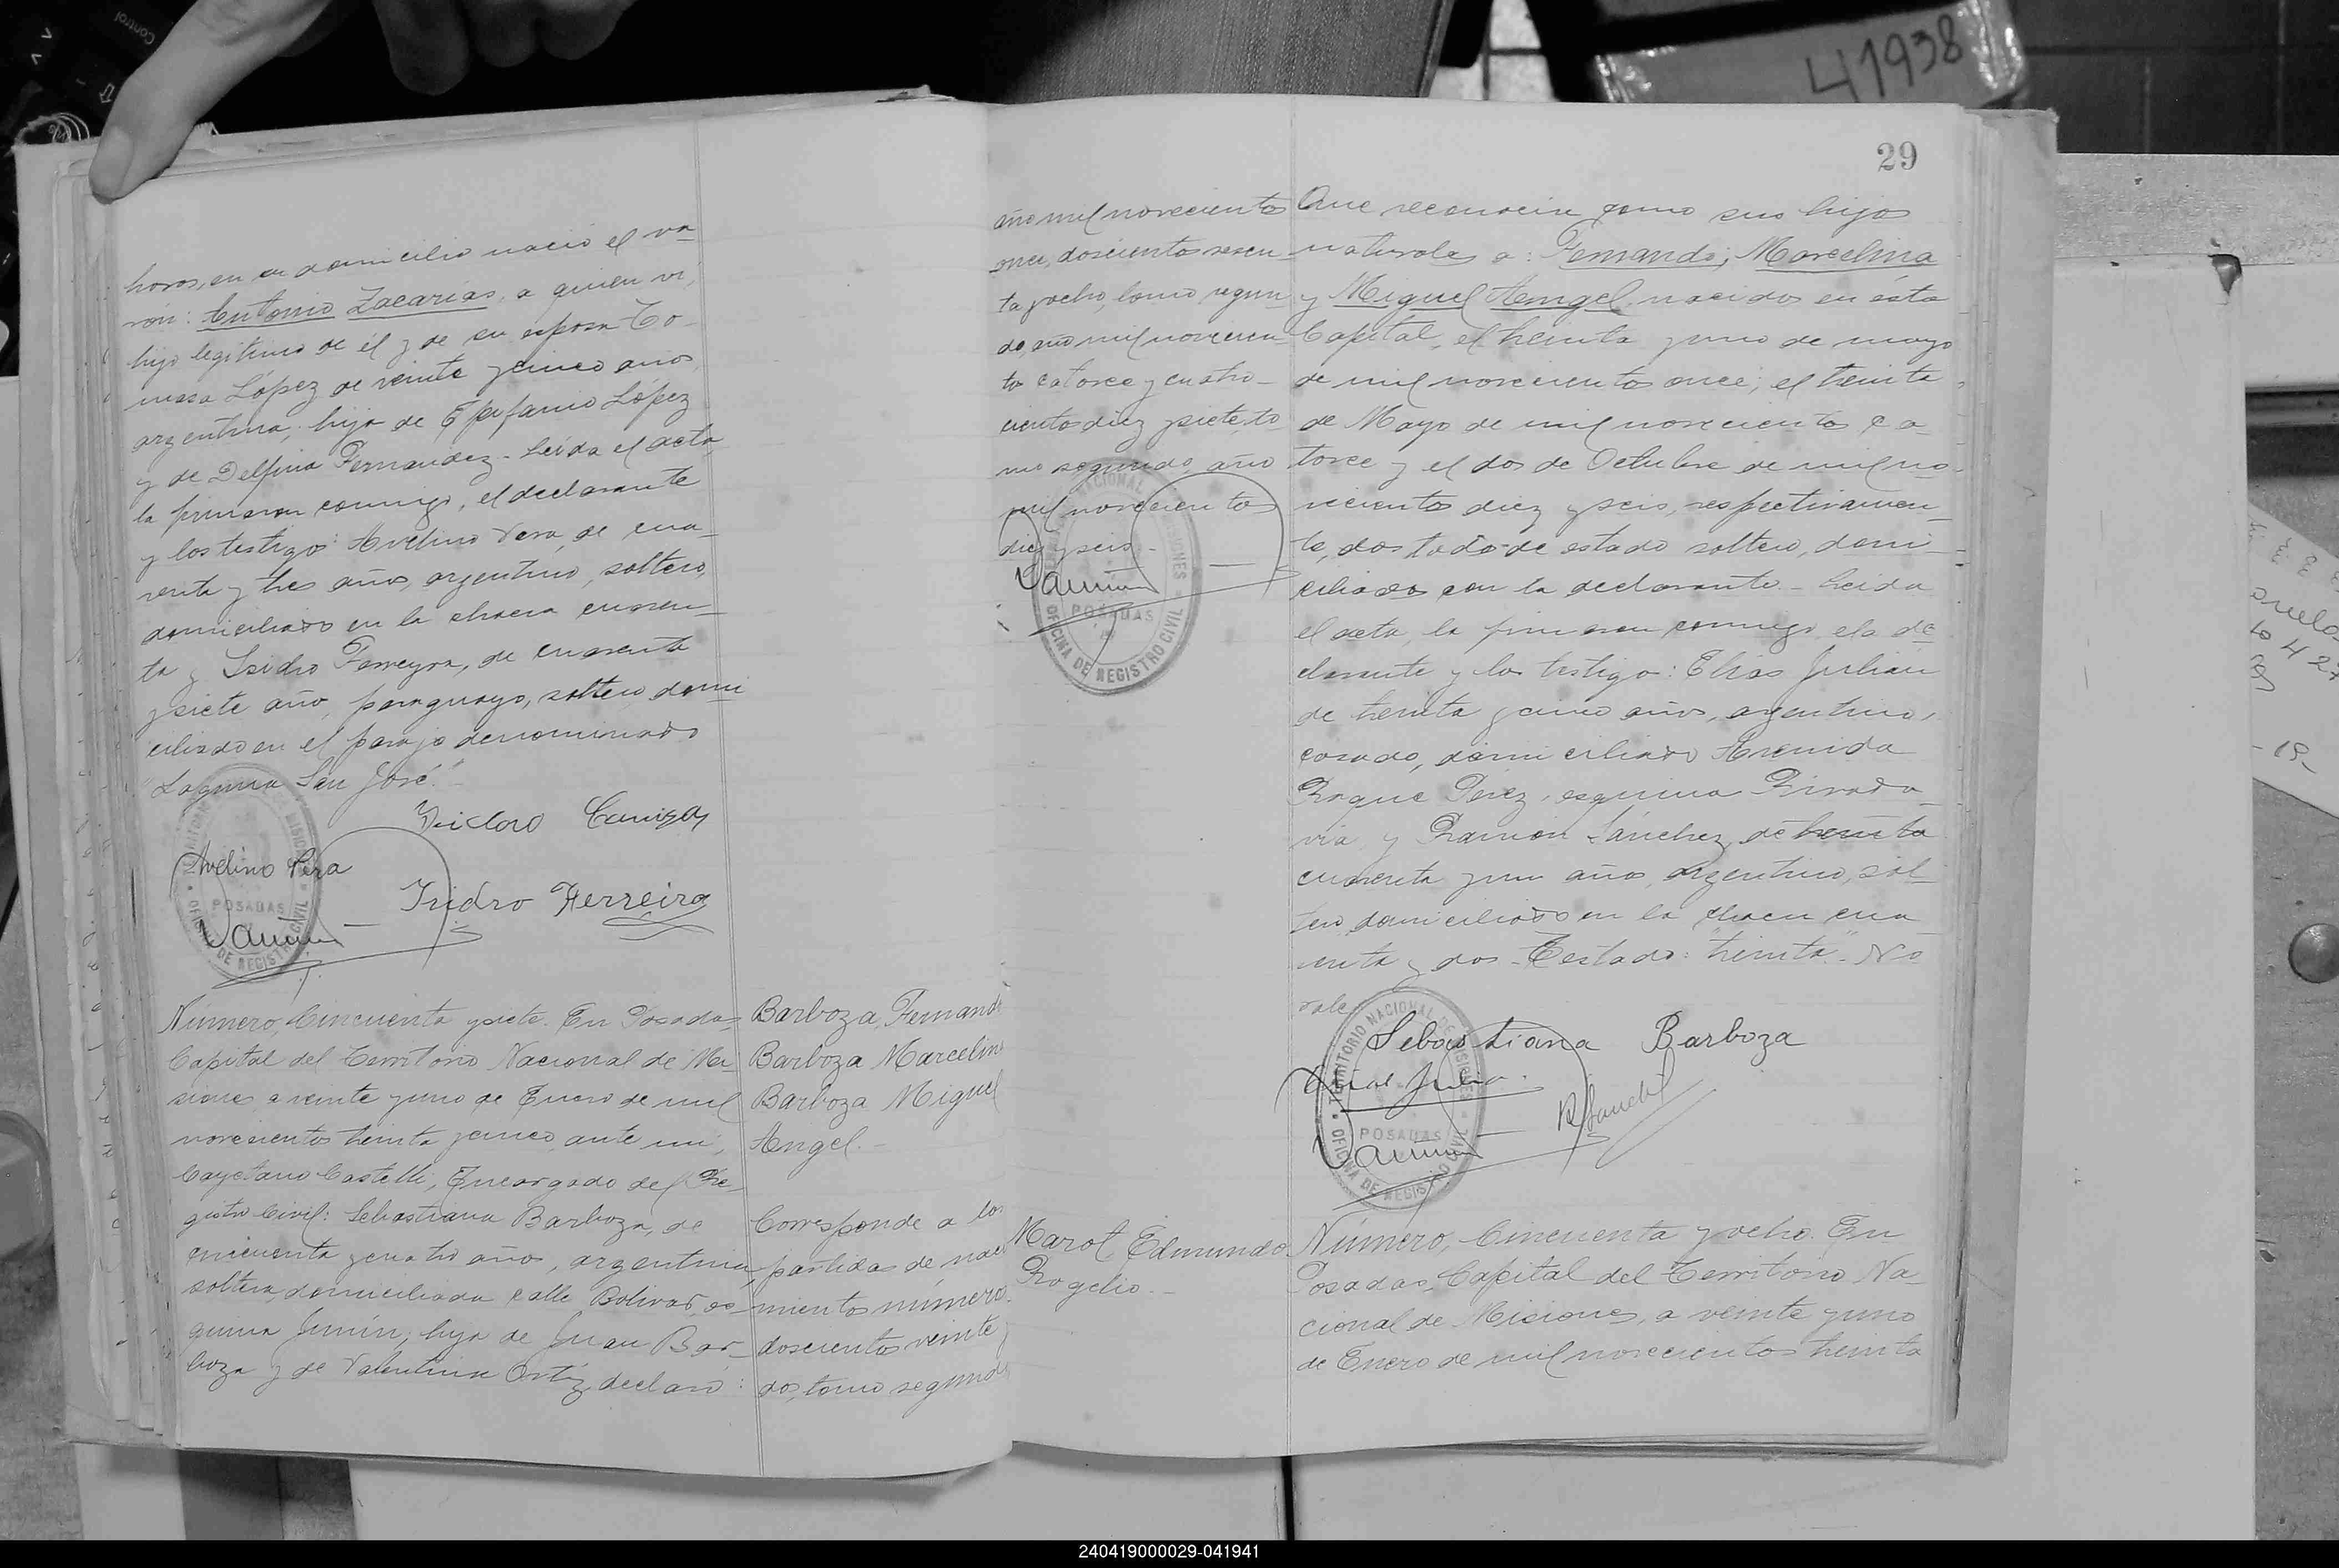 Control
41938
horas, en su domicilio nació el va-
rón: Antonio Zacarías, a quien vi,
hijo legítimo de él y de su esposa To-
masa López de veinte y cinco años,
argentina, hija de Epifanio López
y de Delfina Fernandez.- Leída el acta,
la firmaron conmigo, el declarante
y los testigos: Avelino Vera, de cua-
renta y tres años, argentino, soltero,
domiciliado en la chacra cuaren-
ta y Isidro Ferreyra, de cuarenta
y siete año, paraguayo, soltero, domi
ciliado en el paraje denominado
"Laguna San José."-
Avelino Vera
Isidro Ferreira
POSADAS
OFICINA DE REGISTRO CIVIL
Número, Cincuenta y siete. En Posadas,
Capital del Territorio Nacional de Mi-
siones, a veinte y uno de Enero de mil
novecientos treinta y cinco, ante mi,
Cayetano Castelli, Encargado del Re-
gistro Civil: Sebastiana Barboza, de
cincuenta y cuatro años, argentina,
soltera, domiciliada calle Bolivar, es-
quina Junín, hija de Juan Bar-
boza y de Valentina Ortíz, declaró:
Barboza, Fernand
Barboza Marcelin
Barboza Miguel
Angel.-
Corresponde a los
partidas de naci
mientos número
doscientos veinte y
dos, tomo segundo
29
año mil novecientos
once, doscientos sesen-
ta y ocho, tomo segun-
do, año mil novecien-
tos catorce y cuatro-
cientos diez y siete, to
mo segundo, año
mil novecientos
diez y seis.-
POSADAS
OFICINA DE REGISTRO CIVIL
Que reconocia como sus hijos
naturales a: Fernando; Marcelina
y Miguel Angel, nacidos en ésta
Capital, el treinta y uno de mayo
de mil novecientos once; el treinta
de Mayo de mil novecientos ca-
torce y el dos de Octubre de mil no-
vecientos diez y seis, respectivamen-
te, dos todos de estado soltero, domi-
ciliados con la declarante.- Leida
el acta, la firmaron conmigo, ela de
clarante y los testigo: Elias Julian
de treinta y cinco años, argentino,
casado, domiciliado Avenida
Roque Pérez, esquina Rivada-
via y Ramón Sánchez, de treinta
cuarenta y un años, argentino, sol-
tero, domiciliado en la chacra cua
renta y dos.- Testado: "treinta".- No
vale
Sebastiana Barboza
TERRITORIO NACIONAL DE MISIONES
POSADAS
OFICINA DE REGISTRO CIVIL
Marot, Edmundo
Rogelio.-
Número, Cincuenta y ocho. En
Posadas, Capital del Territorio Na-
cional de Misiones, a veinte y uno
de Enero de mil novecientos treinta
240419000029-041941